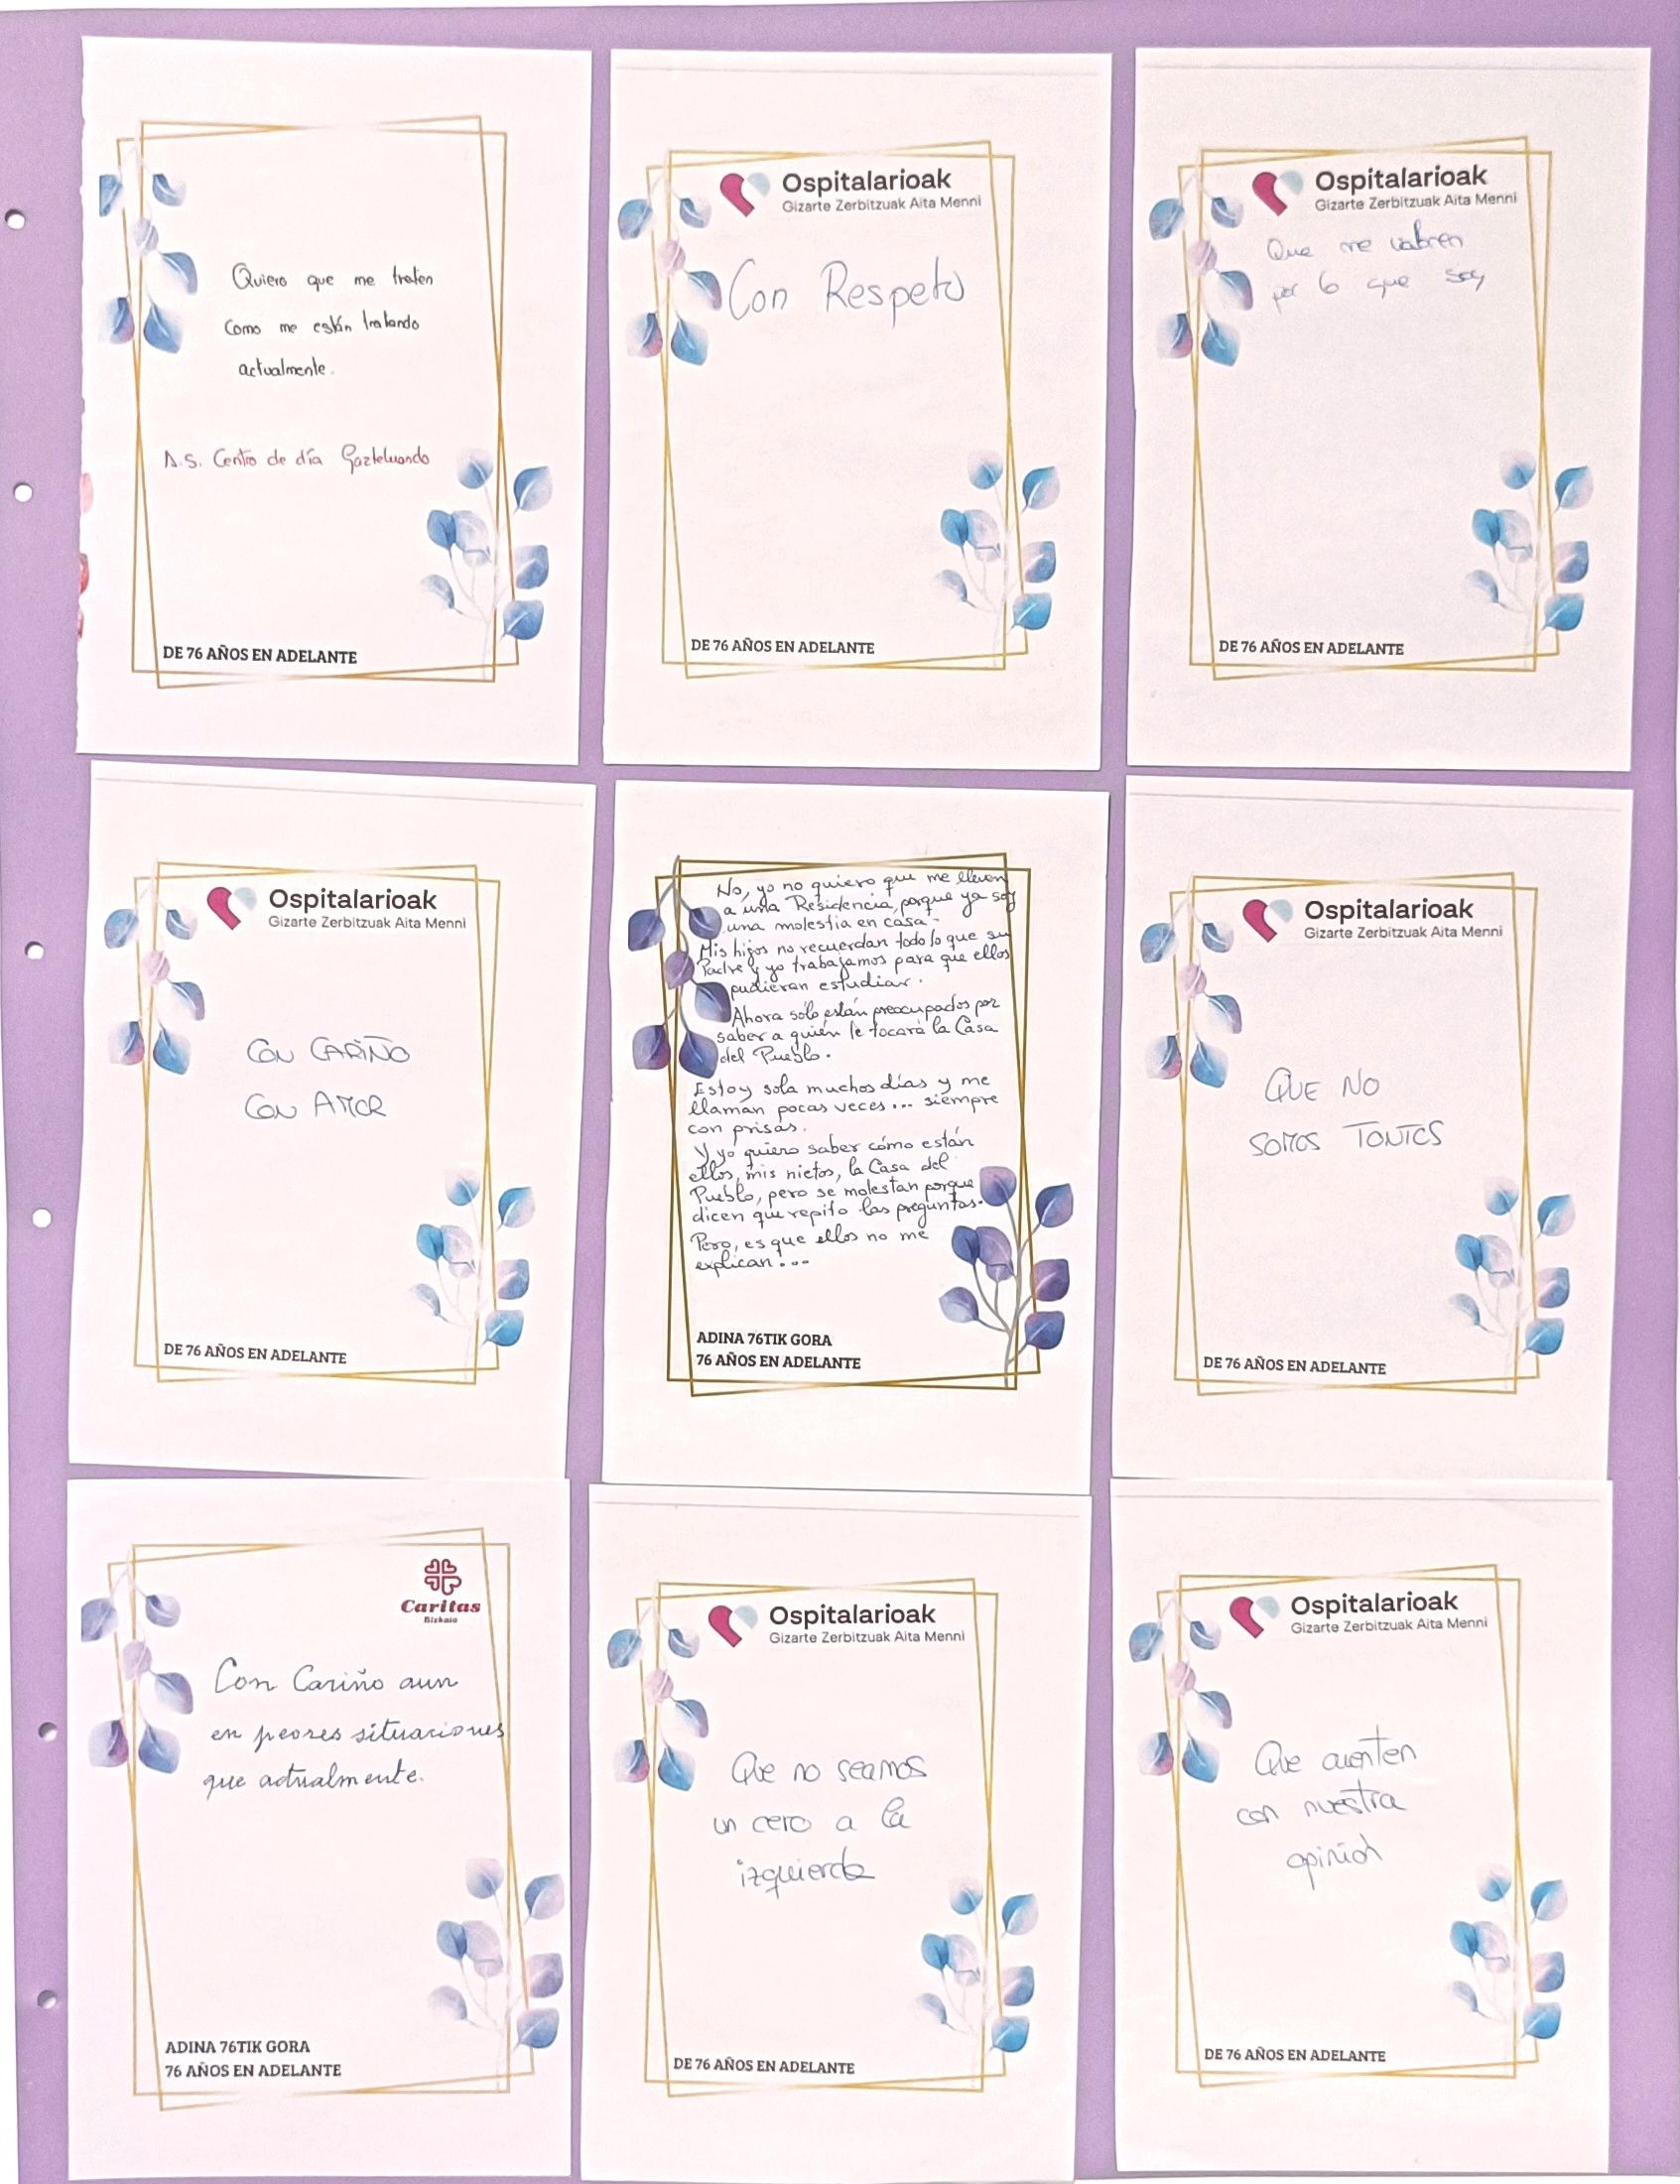 Quiero que me traten
como me están tratando
actualmente.
A.S. Centro de día Gazteluondo
DE 76 AÑOS EN ADELANTE
Ospitalarioak
Gizarte Zerbitzuak Aita Menni
Con Respeto
DE 76 AÑOS EN ADELANTE
Ospitalarioak
Gizarte Zerbitzuak Aita Menni
Que me valoren
por lo que soy
DE 76 AÑOS EN ADELANTE
Ospitalarioak
Gizarte Zerbitzuak Aita Menni
CON CARIÑO
CON AMOR
DE 76 AÑOS EN ADELANTE
No, yo no quiero que me lleven
a una Residencia, porque ya soy
una molestia en casa.
Mis hijos no recuerdan todo lo que su
Padre y yo trabajamos para que ellos
pudieran estudiar.
Ahora sólo están preocupados por
saber a quién le tocará la Casa
del Pueblo.
Estoy sola muchos días y me
llaman pocas veces... siempre
con prisas.
Y yo quiero saber cómo están
ellos, mis nietos, la Casa del
Pueblo, pero se molestan porque
dicen que repito las preguntas.
Pero, es que ellos no me
explican...
ADINA 76TIK GORA
76 AÑOS EN ADELANTE
Ospitalarioak
Gizarte Zerbitzuak Aita Menni
QUE NO
SOMOS TONTOS
DE 76 AÑOS EN ADELANTE
Caritas
Bizkaia
Con Cariño aun
en peores situaciones
que actualmente.
ADINA 76TIK GORA
76 AÑOS EN ADELANTE
Ospitalarioak
Gizarte Zerbitzuak Aita Menni
Que no seamos
un cero a la
izquierda
DE 76 AÑOS EN ADELANTE
Ospitalarioak
Gizarte Zerbitzuak Aita Menni
Que cuenten
con nuestra
opinión
DE 76 AÑOS EN ADELANTE